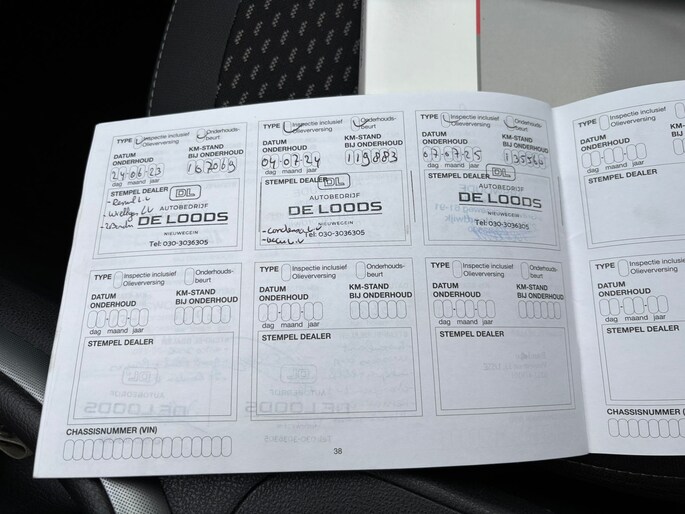 TYPE Inspectie inclusief Olieverversing Onderhouds-beurt
DATUM ONDERHOUD KM-STAND BIJ ONDERHOUD
24-06-23 167069
dag maand jaar
STEMPEL DEALER
DL
AUTOBEDRIJF
DE LOODS
NIEUWEGEIN
Tel: 030-3036305
TYPE Inspectie inclusief Olieverversing Onderhouds-beurt
DATUM ONDERHOUD KM-STAND BIJ ONDERHOUD
04-07-24 119883
dag maand jaar
STEMPEL DEALER
DL
AUTOBEDRIJF
DE LOODS
NIEUWEGEIN
Tel: 030-3036305
TYPE Inspectie inclusief Olieverversing Onderhouds-beurt
DATUM ONDERHOUD KM-STAND BIJ ONDERHOUD
07-07-25
dag maand jaar
STEMPEL DEALER
DL
AUTOBEDRIJF
DE LOODS
NIEUWEGEIN
Tel: 030-3036305
TYPE Inspectie inclusief Olieverversing
DATUM ONDERHOUD
dag maand jaar
STEMPEL DEALER
TYPE Inspectie inclusief Olieverversing Onderhouds-beurt
DATUM ONDERHOUD KM-STAND BIJ ONDERHOUD
dag maand jaar
STEMPEL DEALER
TYPE Inspectie inclusief Olieverversing Onderhouds-beurt
DATUM ONDERHOUD KM-STAND BIJ ONDERHOUD
dag maand jaar
STEMPEL DEALER
TYPE Inspectie inclusief Olieverversing Onderhouds-beurt
DATUM ONDERHOUD KM-STAND BIJ ONDERHOUD
dag maand jaar
STEMPEL DEALER
TYPE Inspectie inclusief Olieverversing
DATUM ONDERHOUD
dag maand jaar
STEMPEL DEALER
CHASSISNUMMER (VIN)
38
CHASSISNUMMER